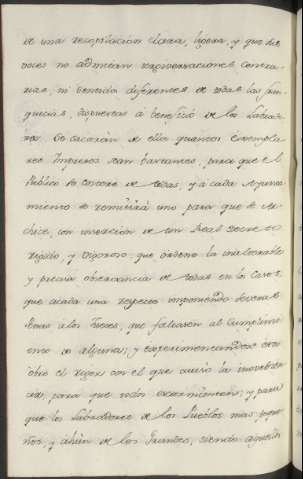 de una recopilacion clara, ligera, y que sus
voces no admitan tergiversaciones contra
rias, ni sentido diferentes de todas las fran
quicias, dispuestas a beneficio de los Labrado
res. Se sacarán de ella quantos exempla
res impresos sean bastantes, para que el
Publico se entere de todas, y á cada Ayunta
miento se remitirá uno para que se Ar
chive, con insercion de un Real Decreto
rigido y vigoroso, que ordene la inalterable
y precisa observancia de todas en los casos
que á cada una respecta imponiendo severas
penas á los Jueces, que faltasen al Cumplimi
ento de alguna; y experimentandose
sobre el rigor con el que
para que todos escarmienten; y para
que los Labradores de los Pueblos mas peque
ños, y ahun de los Grandes, siendo aquellos